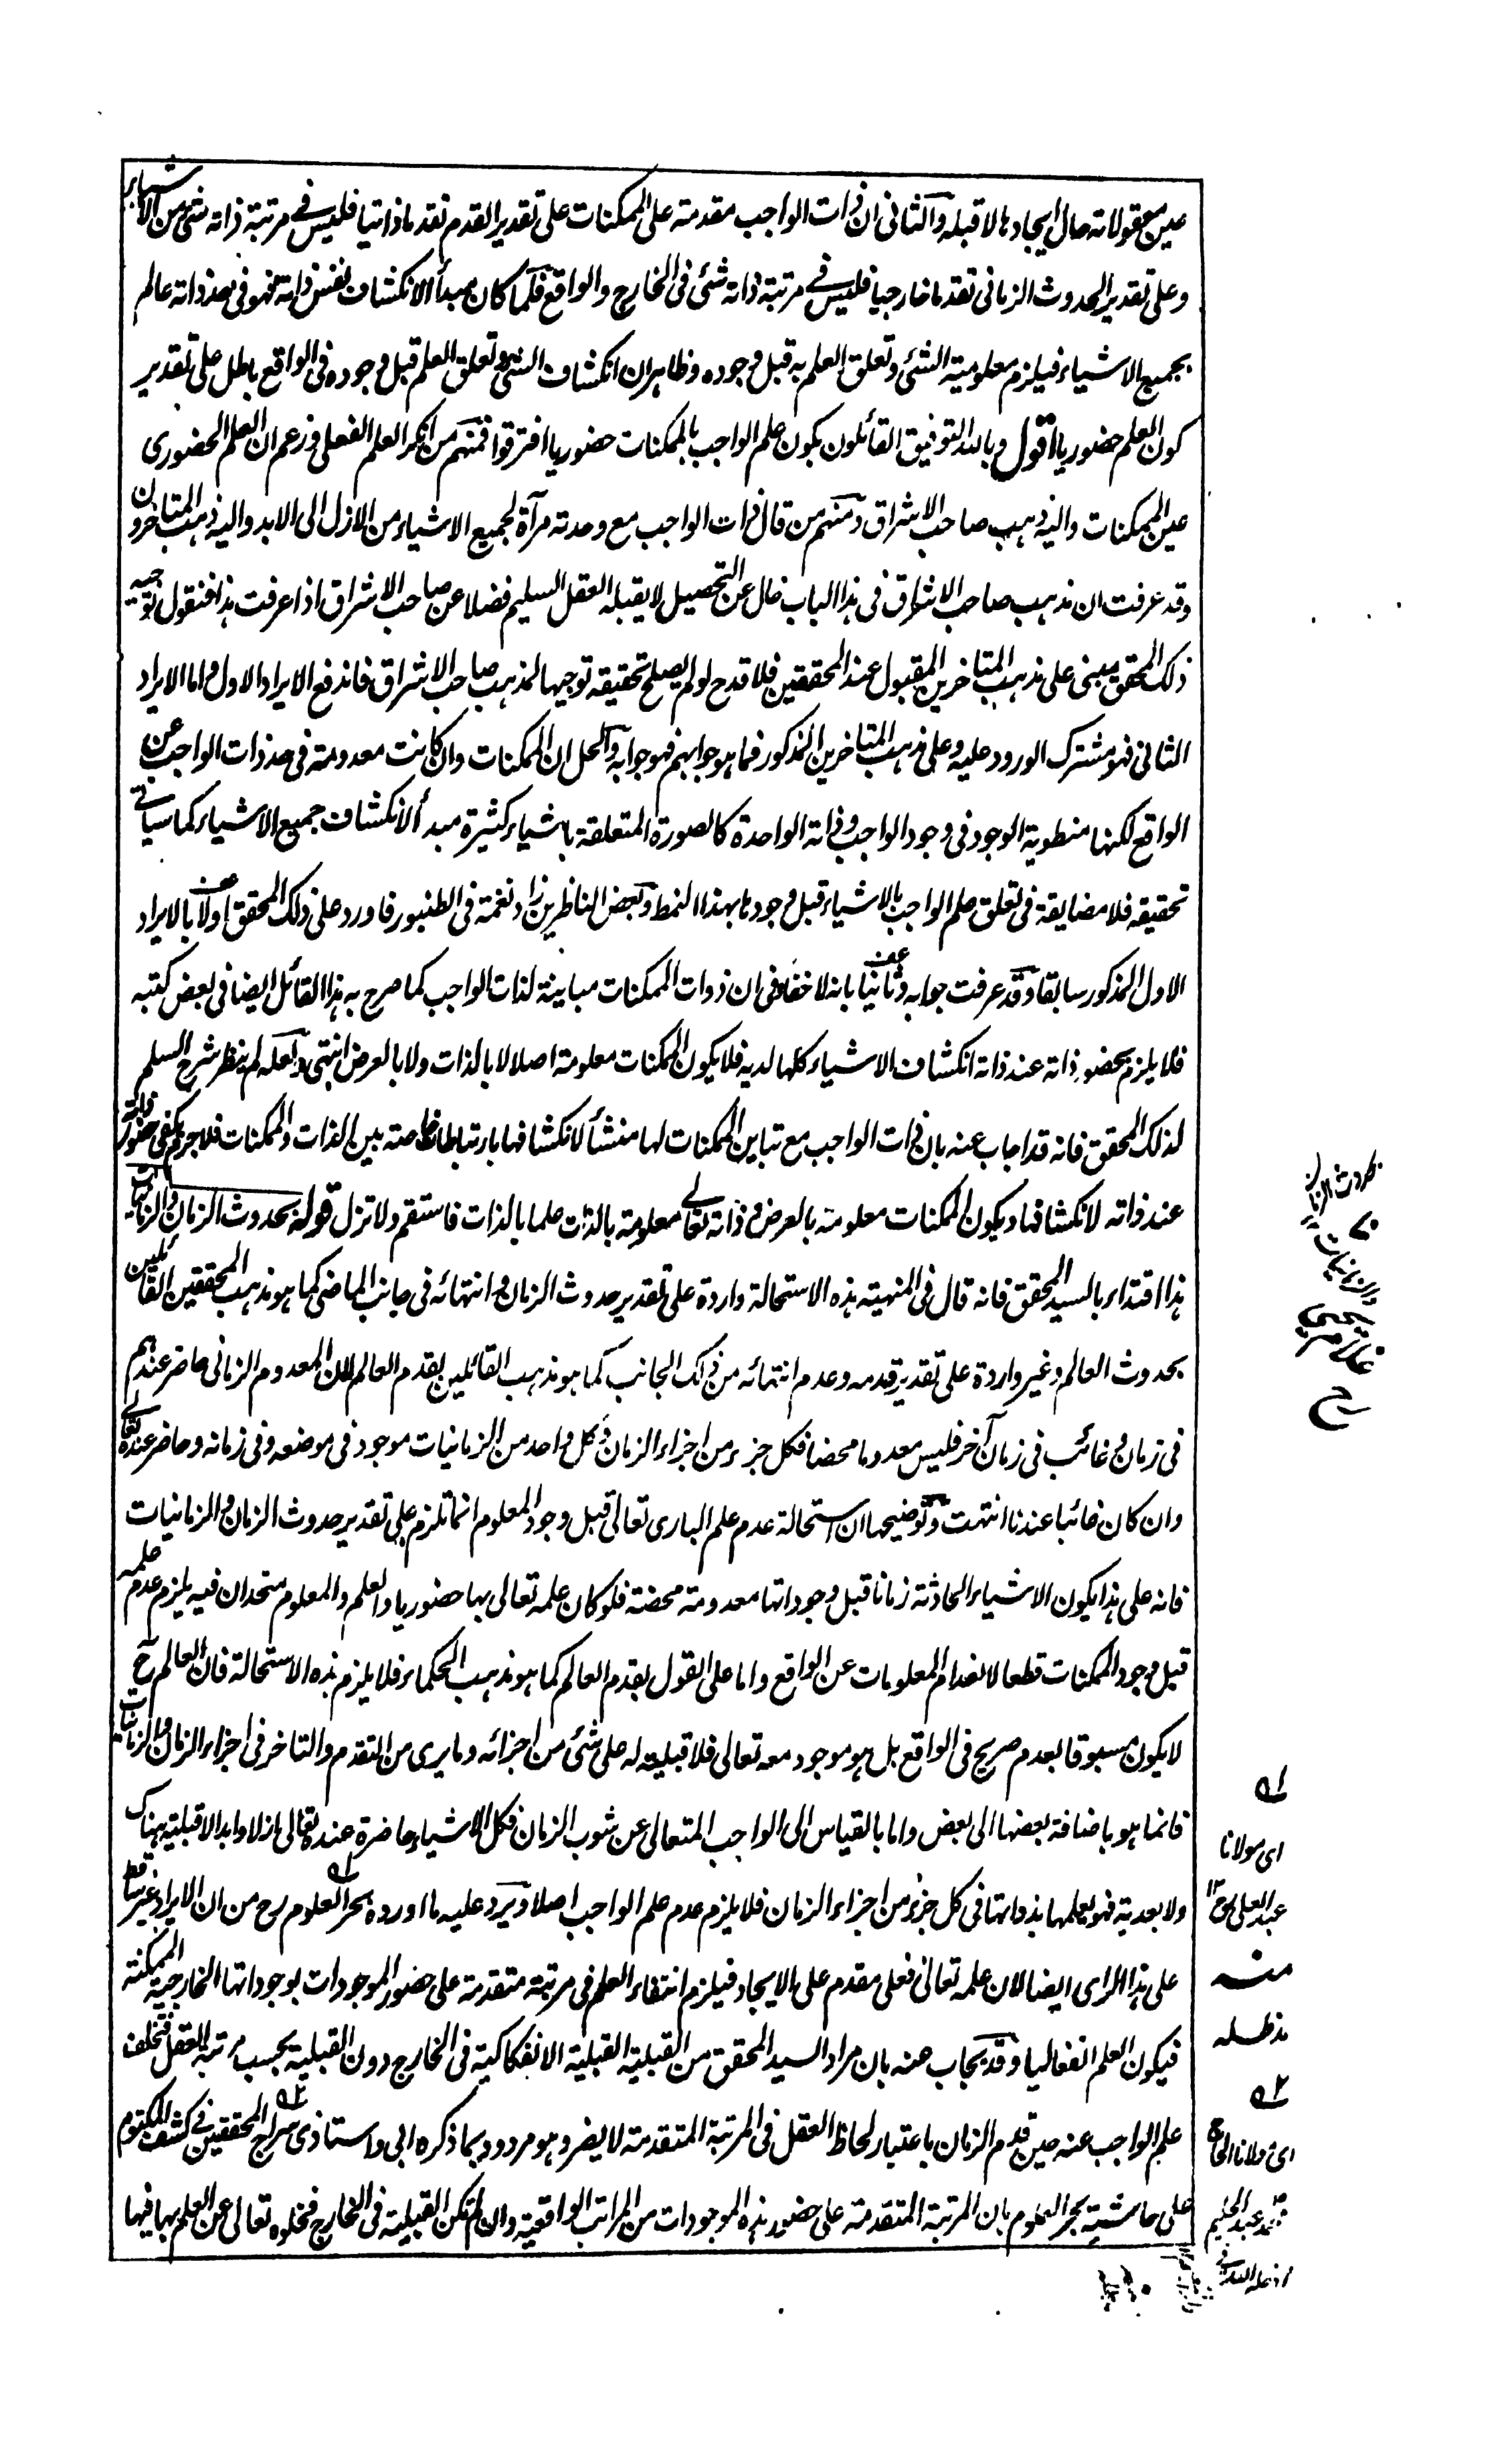 عين معقولاته حال ايجادها لا قبله والثانى ان ذات الواجب مقدمته على الممكنات على تقدير القدم تقدما ذاتيا فليس فے مرتبة ذاته شئ من الاشياء
وعلى تقدير الحدوث الزمانى تقدما خارجيا فليس فے مرتبة ذاته شئ فى الخارج والواقع فلما كان مبدأ الانكشاف نفس ذاته فهو فى حد ذاته عالم
بجميع الاشياء فيلزم معلومية الشئ وتعلق العلم به قبل وجوده وظاهر ان انكشاف الشئ وتعلق العلم قبل وجوده فى الواقع باطل على تقدير
كون العلم حضوريا اقول وبالله التوفيق القائلون بكون علم الواجب بالممكنات حضوريا افترقوا فمنهم من انكر العلم الفعلى وزعم ان العلم الحضورى
عين الممكنات واليه ذهب صاحب الاشراق ومنهم من قال ذات الواجب مع وحدته مرآة لجميع الاشياء من الازل الى الابد واليه ذهب المتاخرون
وقد عرفت ان مذهب صاحب الاشراق فى هذا الباب خال عن التحصيل لا يقبله العقل السليم فضلا عن صاحب الاشراق اذا عرفت هذا فنقول توجيه
ذلك المحقق مبنى على مذهب المتاخرين المقبول عند المحققين فلا قدح لو لم يصلح تحقيقه توجيها لمذهب صاحب الاشراق فاندفع الايراد الاول واما الايراد
الثانى فهو مشترك الورود عليه وعلى مذهب المتاخرين المذكور فما هو جوابهم فهو جوابه والحل ان الممكنات وان كانت معدومة فى حد ذات الواجب عن
الواقع لكنها منطوية الوجود فى وجود الواجب وذاته الواحدة كالصورة المتعلقة باشياء كثيرة مبدأ لانكشاف جميع الاشياء كما سياتے
تحقيقه فلا مضايقة فى تعلق علم الواجب بالاشياء قبل وجودها بهذا النمط وبعض الناظرين زاد نغمة فى الطنبور فاورد على ذلك المحقق اولا بالايراد
الاول المذكور سابقا وقد عرفت جوابه وثانيا بانه لا خفاء فى ان ذوات الممكنات مباينة لذات الواجب كما صرح به هذا القائل ايضا فى بعض كتبه
فلا يلزم بحضور ذاته عند ذاته انكشاف الاشياء كلها لديه فلا يكون الممكنات معلومة اصلا لا بالذات ولا بالعرض انتهى ولعله لم ينظر شرح السلم
لذلك المحقق فانه قد اجاب عنه بان ذات الواجب مع تباين الممكنات لها منشأ لانكشافها بارتباطات خاصة بين الذات والممكنات فلا جرم يكفى حضور ذاته
عند ذاته لانكشافها ويكون الممكنات معلومة بالعرض وذاته تعالے معلومة بالذات علما بالذات فاستقم ولا تزل قوله بحدوث الزمان والزمانيات
هذا اقتداء بالسيد المحقق فانه قال فى المنهية هذه الاستحالة واردة على تقدير حدوث الزمان وانتهائه فى جانب الماضى كما هو مذهب المحققين القائلين
بحدوث العالم وغير واردة على تقدير قدمه وعدم انتهائه من ذلك الجانب كما هو مذهب القائلين بقدم العالم لان المعدوم الزمانى حاضر عندهم
فى زمان وغائب فى زمان آخر فليس معدوما محضا فكل جزء من اجزاء الزمان وكل واحد من الزمانيات موجود فى موضعه وفى زمانه وحاضر عنده تعالے
وان كان غائبا عندنا انتهت وتوضيحها ان استحالة عدم علم البارى تعالى قبل وجود المعلوم انما تلزم على تقدير حدوث الزمان والزمانيات
فانه على هذا يكون الاشياء الحادثة زمانا قبل وجوداتها معدومة محضة فلو كان علمه تعالى بها حضوريا والعلم والمعلوم متحدان فيه يلزم عدم علمه
قبل وجود الممكنات قطعا لانعدام المعلومات عن الواقع واما على القول بقدم العالم كما هو مذهب الحكماء فلا يلزم هذه الاستحالة فان العالم ح
لا يكون مسبوقا بعدم صريح فى الواقع بل هو موجود معه تعالى فلا قبلية له على شئ من اجزائه وما يرى من التقدم والتاخر فى اجزاء الزمان والزمانيات
فانما هو باضافة بعضها الى بعض واما بالقياس الى الواجب المتعالى عن شوب الزمان فكل الاشياء حاضرة عنده تعالى ازلا وابدا لا قبلية هناك
ولا بعدية فهو يعلمها بذواتها فى كل جزء من اجزاء الزمان فلا يلزم عدم علم الواجب اصلا ويرد عليه ما اورده بحر العلوم رح من ان الايراد غير ساقط
على هذا الراى ايضا لان علمه تعالى فعلى مقدم على الايجاد فيلزم انتفاء العلم فى مرتبة متقدمة على حضور الموجودات بوجوداتها الخارجية الممكنة
فيكون العلم انفعاليا وقد يجاب عنه بان مراد السيد المحقق من القبلية القبلية الانفكاكية فى الخارج دون القبلية بحسب مرتبة العقل فتخلف
علم الواجب عنه حين قدم الزمان باعتبار لحاظ العقل فى المرتبة المتقدمة لا يضر وهو مردود بما ذكره ابى واستاذى سراج المحققين فے كشف المكتوم
على حاشية بحر العلوم بان المرتبة المتقدمة على حضور هذه الموجودات من المراتب الواقعية وان لم تكن القبلية فى الخارج فخلوه تعالى عن العلم بها فيها
بحدوث الزمان
والزمانيات
٥١
اى مولانا
عبد العلى رح ١٢
منه
مد ظله
٥٢
اى مولانا الحاج
محمد عبد الحليم